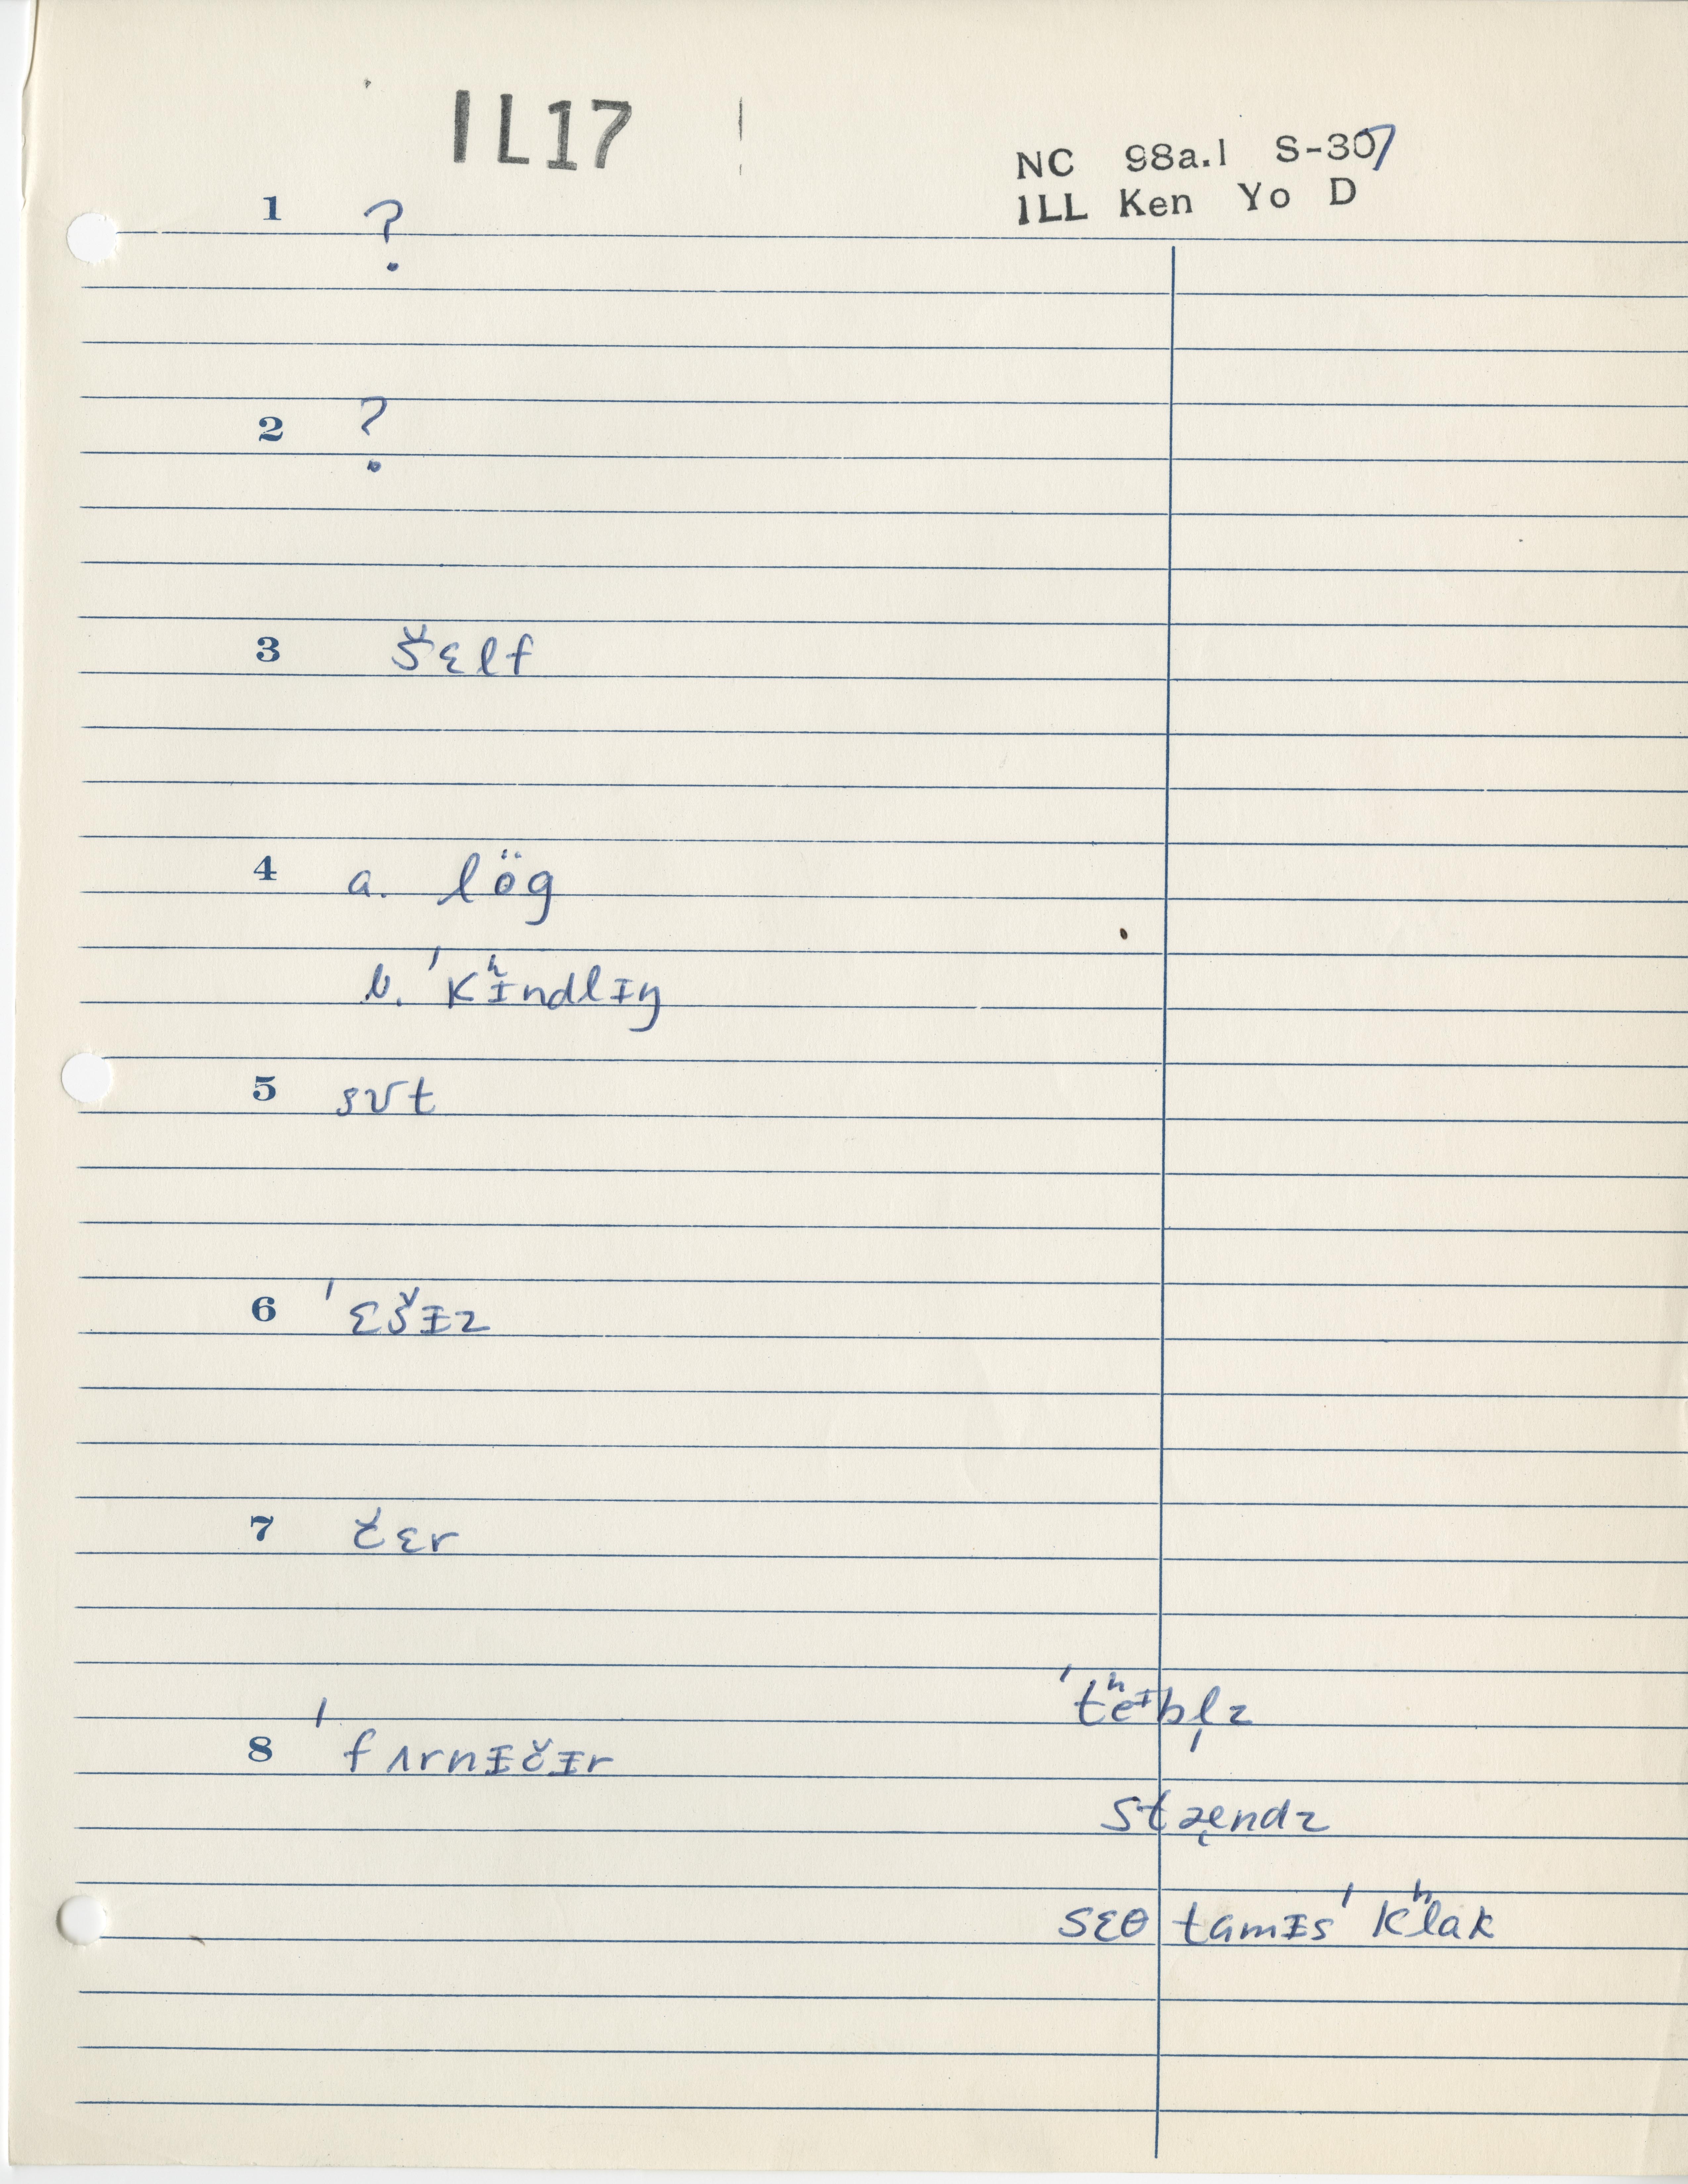 IL17
NC 98a.1 S-307
ILL Ken Yo D
1 ?
2 ?
3 šɛlf
4 a. lög
b. ˈkʰɪndlɪŋ
5 sʊt
6 ˈɛšɪz
7 čɛr
ˈtʰeɪbl̩z
8 ˈfʌrnɪčɪr
stæ̨ndz
sɛθ tamɪsˈ kʰlak